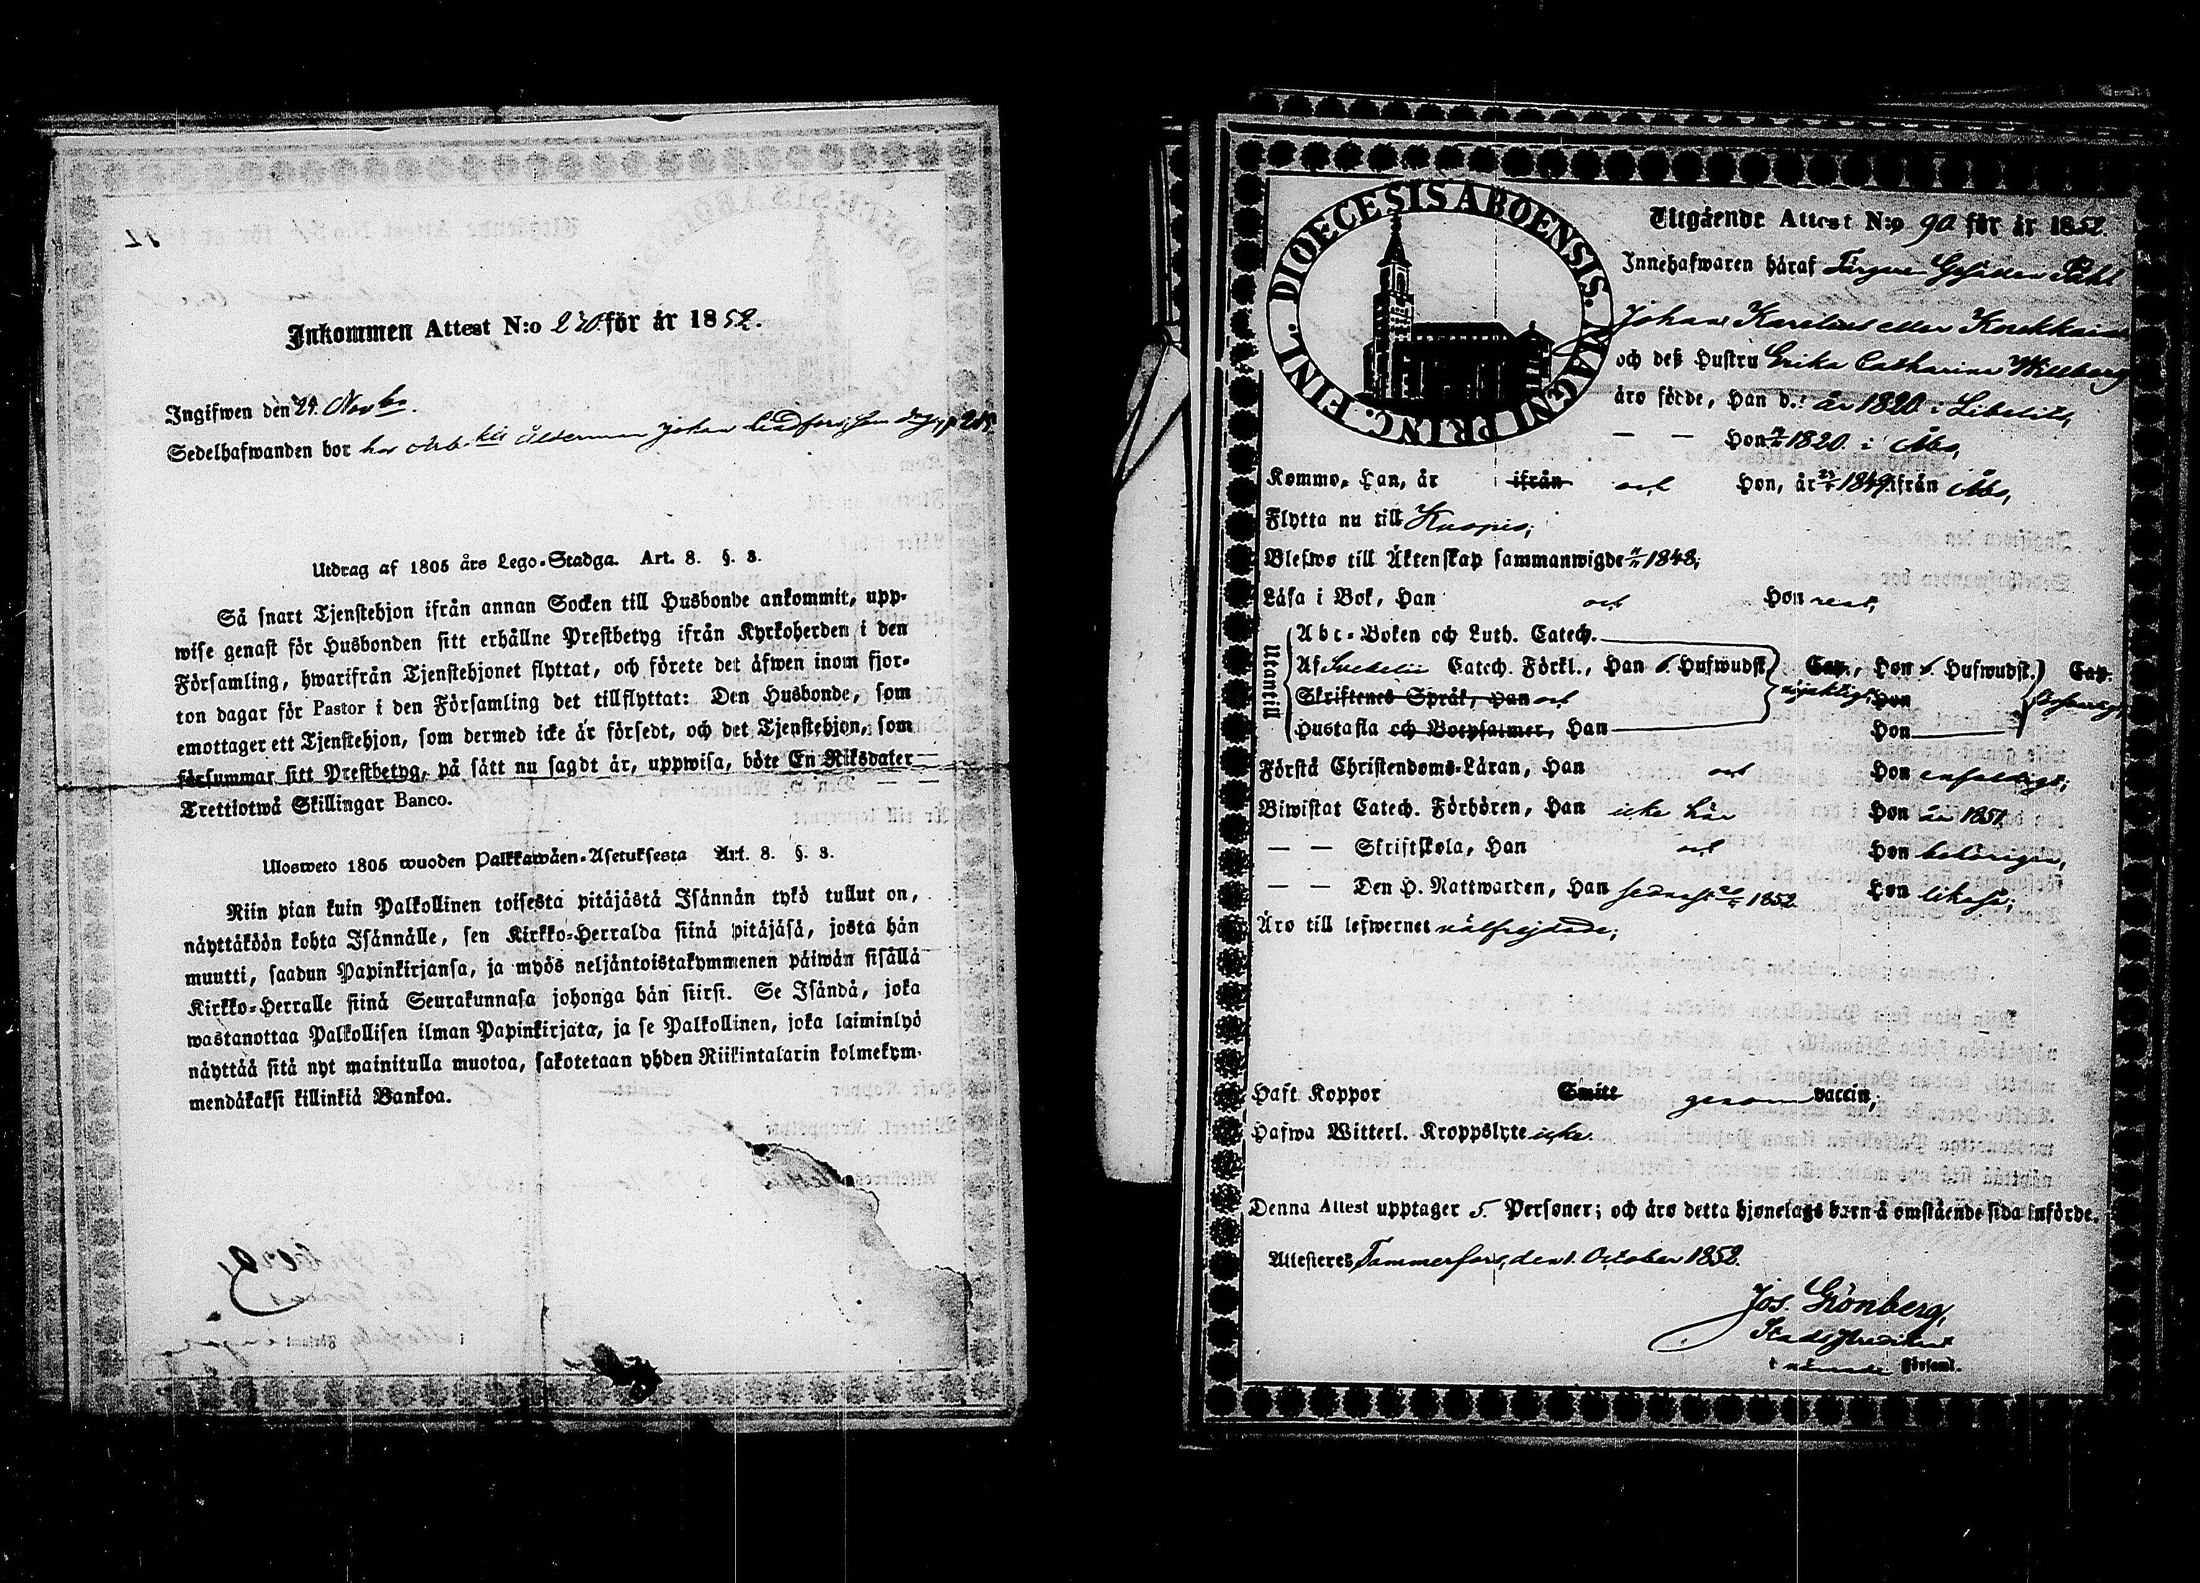 Inkommen Attest N:o 230 för år 1852.
Ingifwen den 29. Novbr.
Sedelhafwanden bor hos Ålderman Johan Lindfors, p 215.
Utdrag af 1805 års Lego-Stadga. Art. 8. §. 3.
Så snart Tjenstehjon ifrån annan Socken till Husbonde ankommit, upp-
wise genast för Husbonden sitt erhållne Prestbetyg ifrån Kyrkoherden i den
Församling, hwarifrån Tjenstehjonet flyttat, och förete det äfwen inom fjor-
ton dagar för Pastor i den Församling det tillflyttat: Den Husbonde, som
emottager ett Tjenstehjon, som dermed icke är försedt, och det Tjenstehjon, som
försummar sitt Prestbetyg, på sätt nu sagdt är, uppwisa, böte En Riksdaler
Trettiotwå Skillingar Banco.
Ulosweto 1805 wuoden Palkkawäen-Asetuksesta Art. 8. §. 3.
Niin pian kuin Palkollinen toisesta pitäjästä Isännän tykö tullut on,
näyttäköön kohta Isännälle, sen Kirkko-Herralda siinä pitäjäsä, josta hän
muutti, saadun Papinkirjansa, ja myös neljäntoistakymmenen päiwän sisällä
Kirkko-Herralle siinä Seurakunnasa johonga hän siirsi. Se Isändä, joka
wastanottaa Palkollisen ilman Papinkirjata, ja se Palkollinen, joka laiminlyö
näyttää sitä nyt mainitulla muotoa, sakotetaan yhden Riikintalarin kolmekym-
mendäkaksi killinkiä Bankoa.
DIOECESIS ABOENSIS. MAGNI PRINC. FINL.
Utgående Attest N:o 90 för år 1852.
Innehafwaren häraf Färgare Gesällen
Johan Karelius eller Korckkain
och deß Hustru Erika Catharina Willberg
äro födde, Han d.: år 1820 i Libelits,
— — Hon 1820. i Åbo,
Kommo, Han, år ifrån och Hon, år 1849 ifrån Åbo,
Flytta nu till Kuopio;
Blefwo till Äktenskap sammanwigde 1848;
Läsa i Bok, Han och Hon rent,
Utantill
Abc-Boken och Luth. Catech.
Af Svebelii Catech. Förkl., Han 6. Hufwudst. Cap., Hon 6. Hufwudst. Cap.
Skriftenes Språk, Han och nöjaktigt Hon
Hustafla och Botpsalmer, Han Hon
Förstå Christendoms-Läran, Han och Hon enfaldigt;
Biwistat Catech. Förhören, Han icke här Hon år 1851.
— — Skriftskola, Han och Hon behörigen,
— — Den H. Nattwarden, Han sednast 1852. Hon likaså;
Äro till lefwernet wälfrejdade;
Haft Koppor Smitt genom vaccin,
Hafwa Witterl. Kroppslyte icke.
Denna Attest upptager 5. Personer; och äro detta hjonelags barn å omstående sida införde.
Attesteres Tammerfors, den 1. October 1852.
Jos. Grönberg,
Stadspredikant
i Församl.